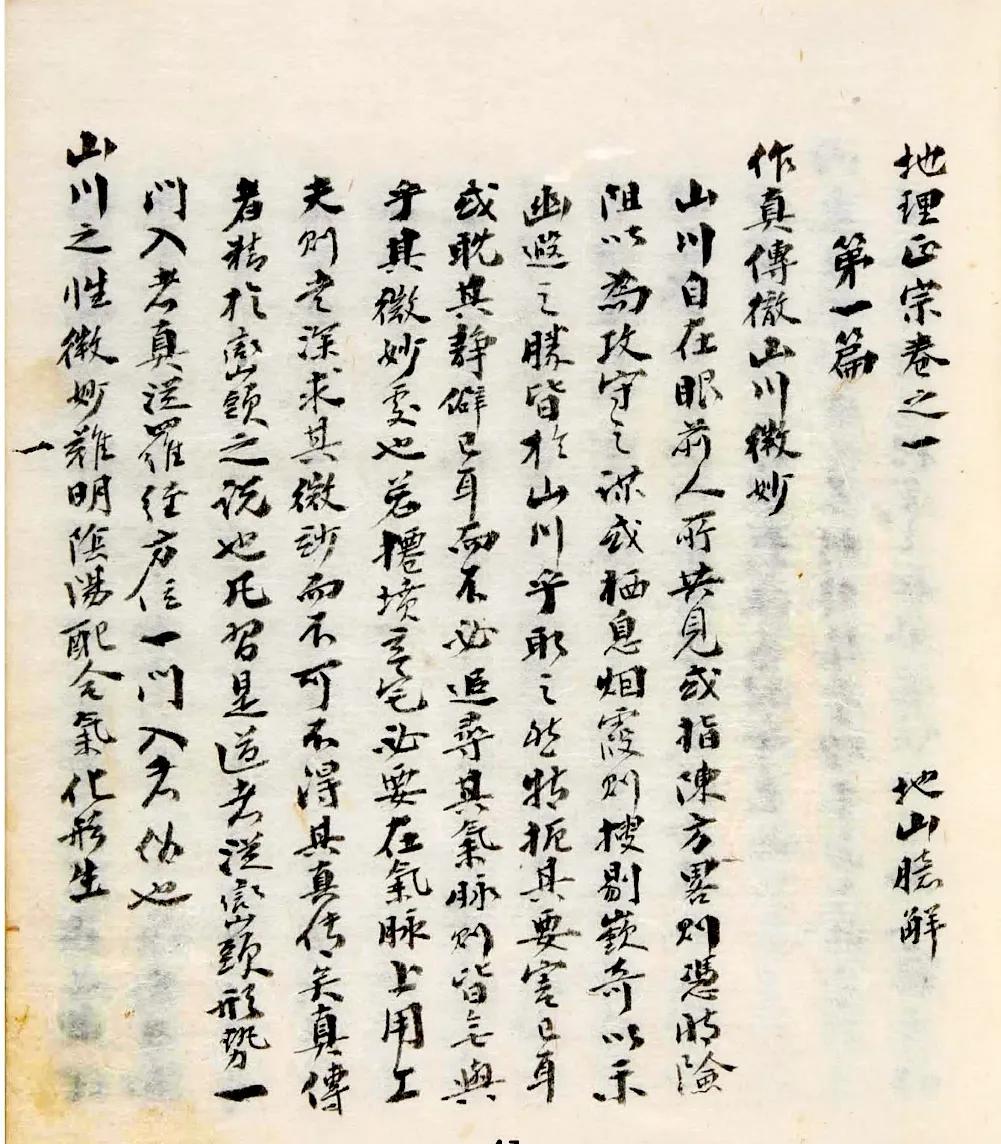 地理正宗卷之一 地山臆解
第一篇
作真傳徹山川微妙
山川自在眼前人所共見或指陳方畧則憑險
阻以為攻守之謀或栖息烟霞則搜剔嶔奇以示
幽遐之勝皆於山川乎取之然特扼其要害已耳
或耽其靜僻已耳而不必追尋其氣脉則皆无與
乎其微妙處也若塋墳立宅必要在氣脉上用工
夫則尤深求其微妙而不可不得其真传矣真傳
者精於巒頭之説也凡習是道者從巒頭形勢一
門入者真從羅经方位一門入者偽也
山川之性微妙難明陰陽配合氣化形生
一